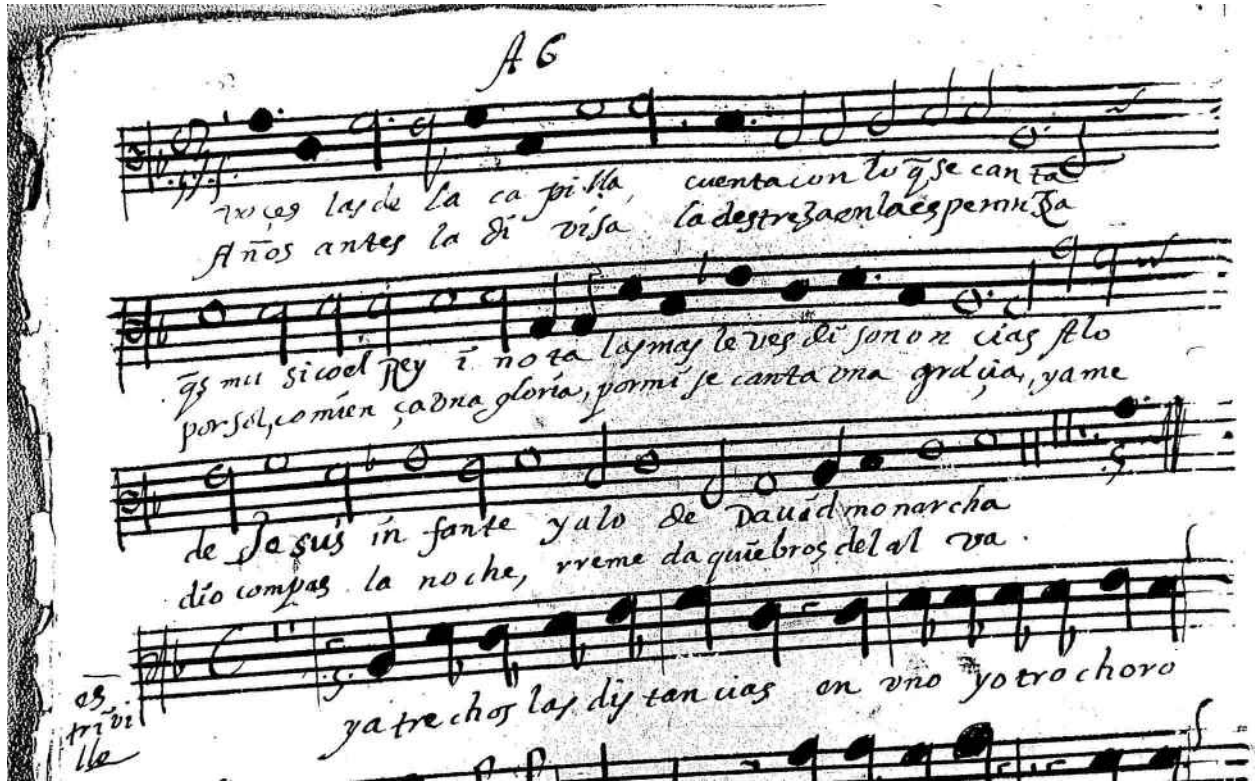 A 6
voçes las de la ca pilla, cuenta con lo q̃ se can ta
Años antes la di visa la destreza en la esperança
q̃s mu sico el Rey i no ta las mas le ves di sonon cias A lo
por sol, comien ça vna gloria, por mi se canta vna gracia, ya me
de Jesus in fante y a lo de Dauid monarcha
dio compas la noche, rreme da quiebros del al va.
es
tri vi
llo
ya tre chos las dis tan cias en vno y otro choro